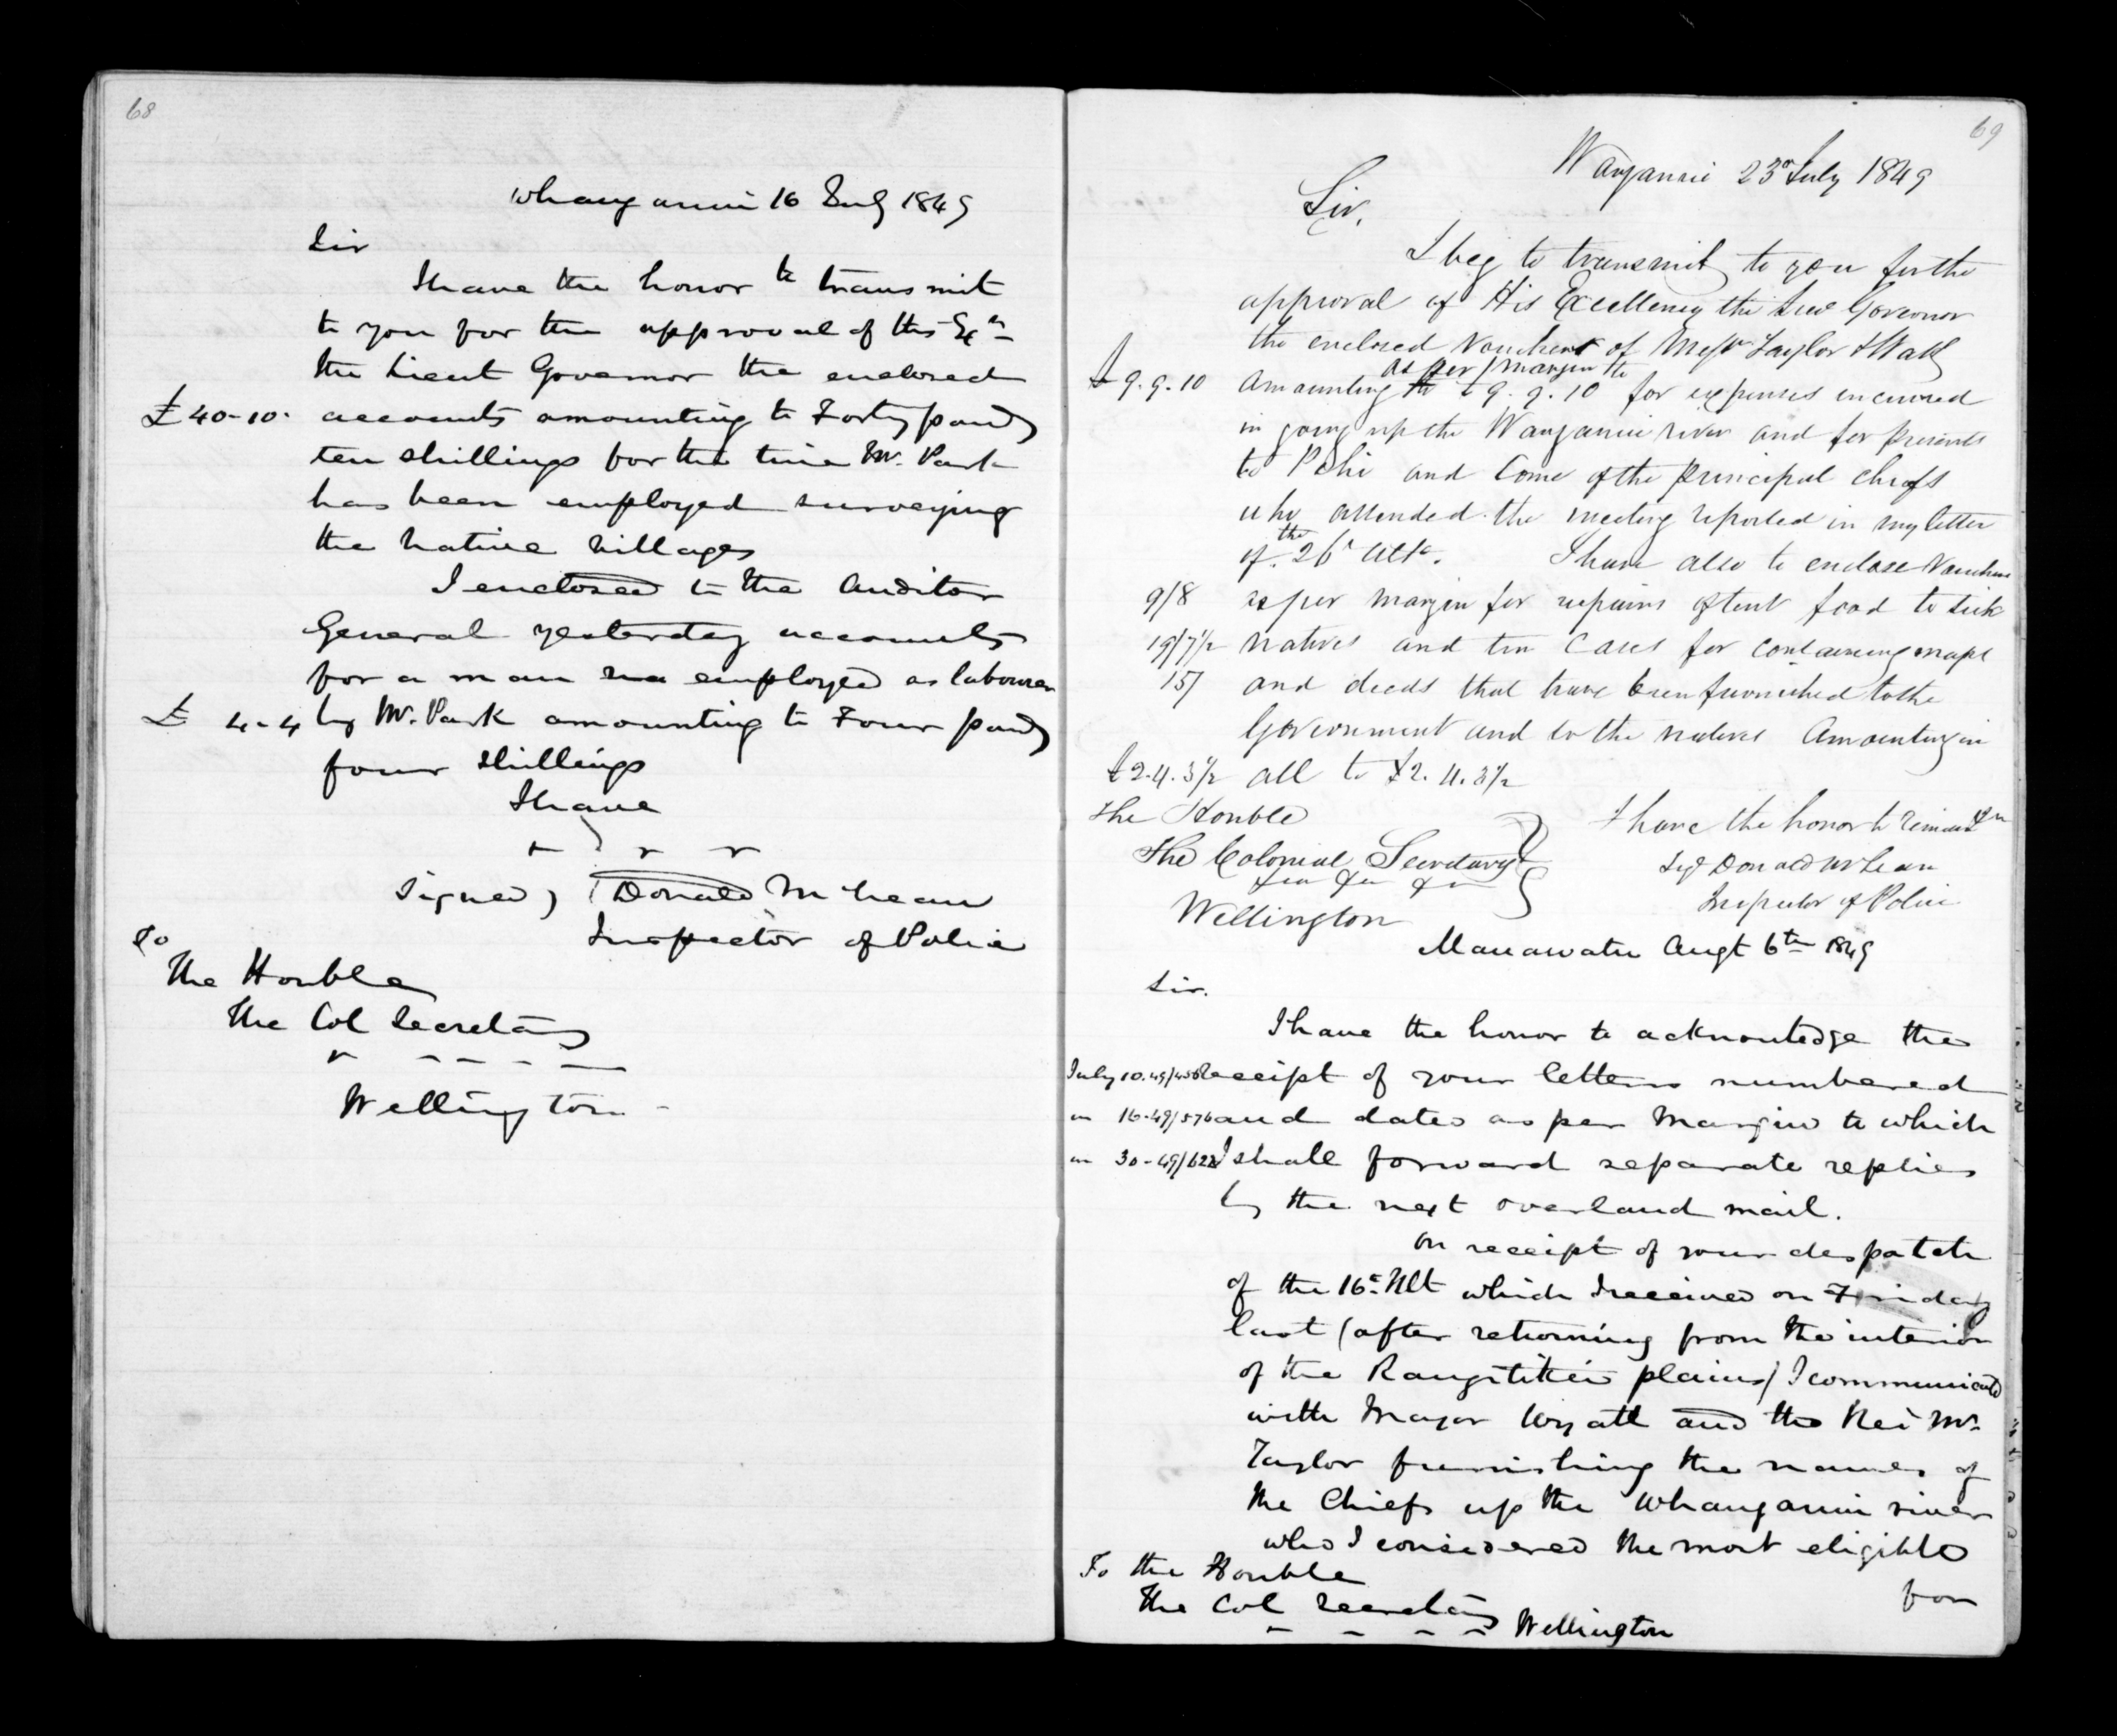 68
Whanganui 16 July 1849
Sir
I have the honor to transmit
to you for the approval of His Exy
the Lieut Governor the enclosed
£40-10- accounts amounting to Forty pounds
ten shillings for the time Mr. Park
has been employed surveying
the native villages
I enclosed to the Auditor
General yesterday accounts
for a man employed as labourer
£ 4-4 by Mr. Park amounting to Four pounds
four shillings
I have
Signed) Donald McLean
Inspector of Police
To
The Honble
The Col Secretary
Wellington
69
Wanganui 23d July 1849
Sir,
I beg to transmit to you for the
approval of His Excellency the Lieut Governor
the enclosed Vouchers of Messrs Taylor & Wall
as per margin to
£9.9.10 Amounting to £9.9.10 for expenses incurred
in going up the Wanganui river and for presents
to Pehi and some of the principal chiefs
who attended the meeting reported in my letter
of the 26th ulto. I have also to enclose Vouchers
9/8 as per margin for repairs of tent food to sick
19/7½ natives and tin cases for containing maps
15/ and deeds that have been furnished to the
Government and to the natives Amounting in
£2.4.3½ all to £2.4.3½
The Honble
The Colonial Secretary
Wellington
I have the honor to remain &c
Sigd Donald McLean
Inspector of Police
Manawatu Augt 6th 1849
Sir.
I have the honor to acknowledge the
July 10. receipt of your letters numbered
" 16-49/576 and dated as per Margin to which
" 30-49/ I shall forward separate replies
by the next overland mail.
On receipt of your despatch
of the 16th Ult which I received on Friday
last (after returning from the interior
of the Rangitikei plains) I communicated
with Major Wyatt and the Rev Mr.
Taylor furnishing the names of
the Chiefs up the Whanganui river
who I considered the most eligible
for
To the Honble
The Col Secretary
Wellington